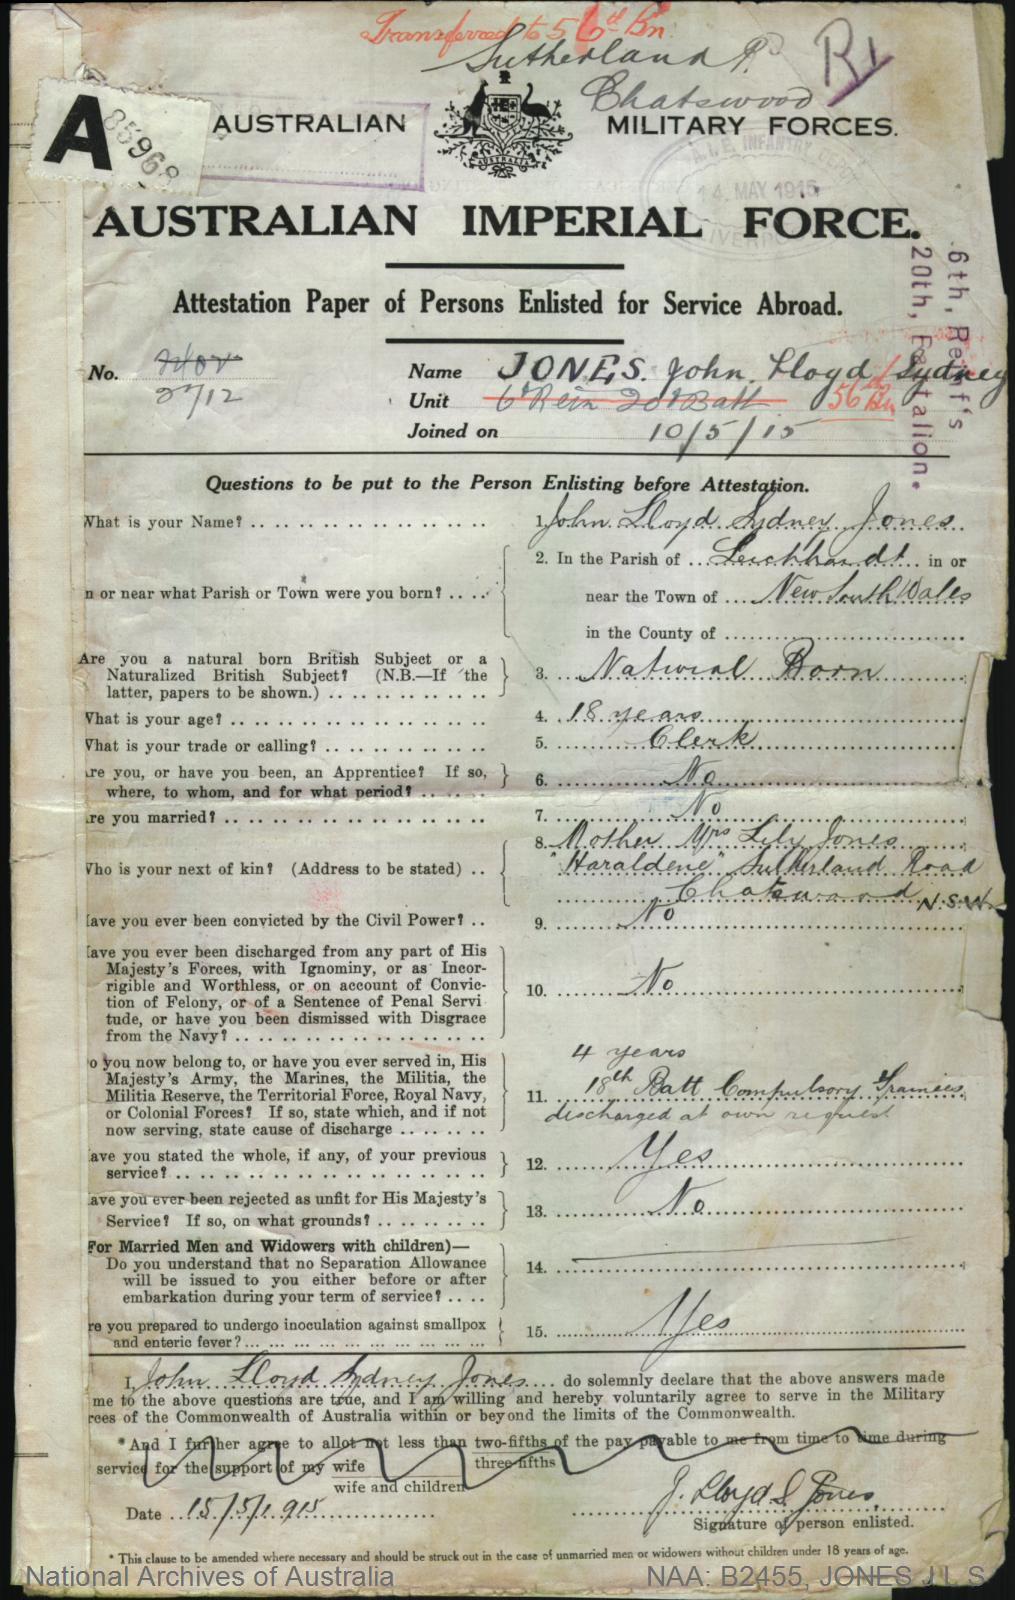 Transferred to 56th Bn.
Sutherland Rd
Chatswood
A 85968
AUSTRALIAN MILITARY FORCES.
AUSTRALIA
A.I.F. INFANTRY
14 MAY 1915
AUSTRALIAN IMPERIAL FORCE.
Attestation Paper of Persons Enlisted for Service Abroad.
6th, Reinf's
20th, Battalion.
No. 2402
2712
Name JONES. John Lloyd Sydney
Unit 6th Rein 20th Batt 56th Bn
Joined on 10/5/15
Questions to be put to the Person Enlisting before Attestation.
What is your Name? .. 1. John Lloyd Sydney Jones
n or near what Parish or Town were you born? .. 2. In the Parish of Leichhardt in or
near the Town of New South Wales
in the County of
Are you a natural born British Subject or a
Naturalized British Subject? (N.B.—If the
latter, papers to be shown.) 3. Natural Born
What is your age? 4. 18 years
What is your trade or calling? 5. Clerk
re you, or have you been, an Apprentice? If so,
where, to whom, and for what period? 6. No
re you married? 7. No
8. Mother Mrs Lily Jones
Who is your next of kin? (Address to be stated) .. "Haraldene" Sutherland Road
Chatswood N.S.W.
ave you ever been convicted by the Civil Power? .. 9. No
ave you ever been discharged from any part of His
Majesty's Forces, with Ignominy, or as Incor-
rigible and Worthless, or on account of Convic-
tion of Felony, or of a Sentence of Penal Servi
tude, or have you been dismissed with Disgrace
from the Navy? 10. No
o you now belong to, or have you ever served in, His
Majesty's Army, the Marines, the Militia, the
Militia Reserve, the Territorial Force, Royal Navy,
or Colonial Forces? If so, state which, and if not
now serving, state cause of discharge
4 years
11. 18th Batt Compulsory Trainees
discharged at own request
ave you stated the whole, if any, of your previous
service? 12. Yes
ave you ever been rejected as unfit for His Majesty's
Service? If so, on what grounds? 13. No
For Married Men and Widowers with children)—
Do you understand that no Separation Allowance
will be issued to you either before or after
embarkation during your term of service? 14.
re you prepared to undergo inoculation against smallpox
and enteric fever? 15. Yes
I, John Lloyd Sydney Jones do solemnly declare that the above answers made
me to the above questions are true, and I am willing and hereby voluntarily agree to serve in the Military
rces of the Commonwealth of Australia within or beyond the limits of the Commonwealth.
*And I further agree to allot not less than two-fifths of the pay payable to me from time to time during
three-fifths
service for the support of my wife
wife and children
Date 15/5/1915
J. Lloyd S. Jones
Signature of person enlisted.
* This clause to be amended where necessary and should be struck out in the case of unmarried men or widowers without children under 18 years of age.
National Archives of Australia NAA: B2455, JONES J L S